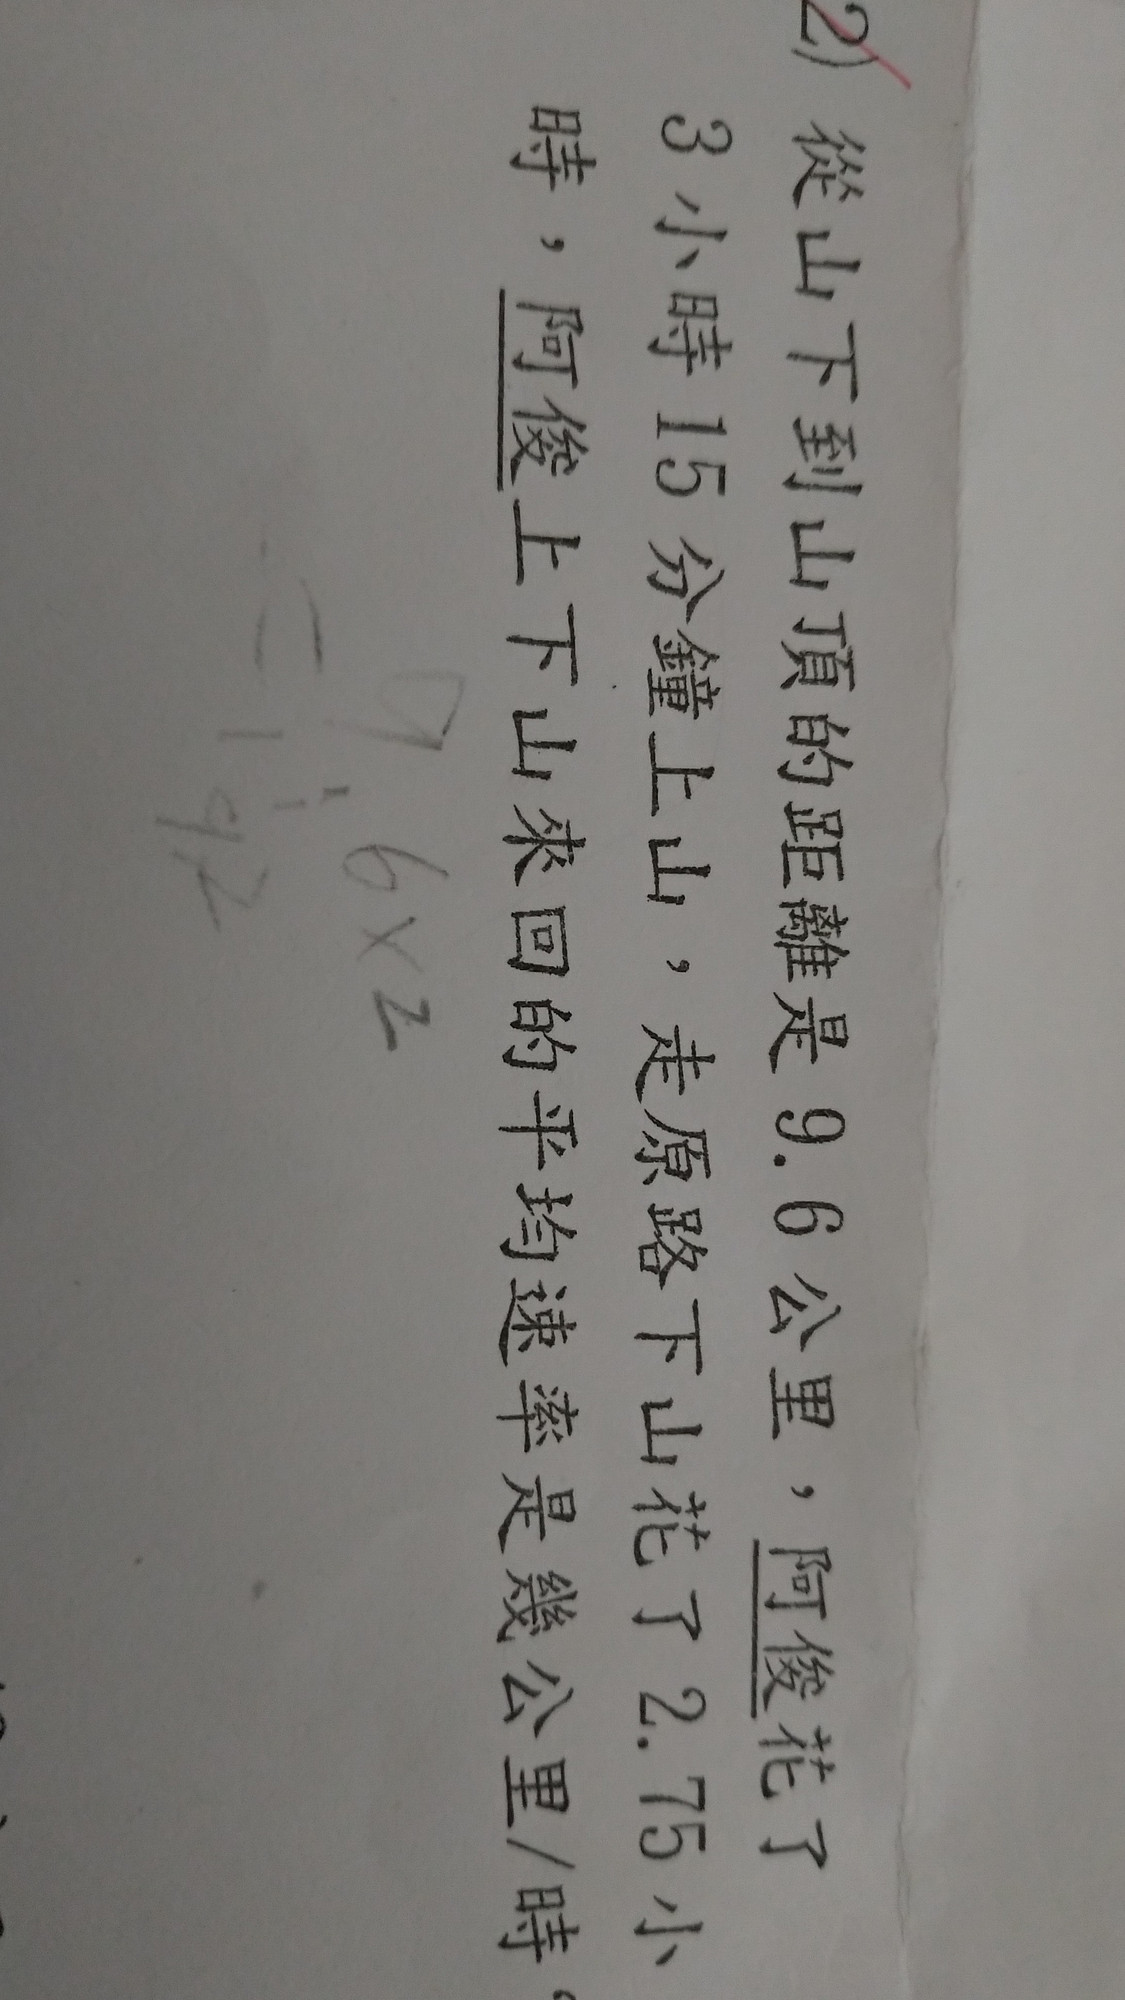 2) 從山下到山頂的距離是9.6公里，阿俊花了
3小時15分鐘上山，走原路下山花了2.75小
時，阿俊上下山來回的平均速率是幾公里/時。
9.6×2
=19.2